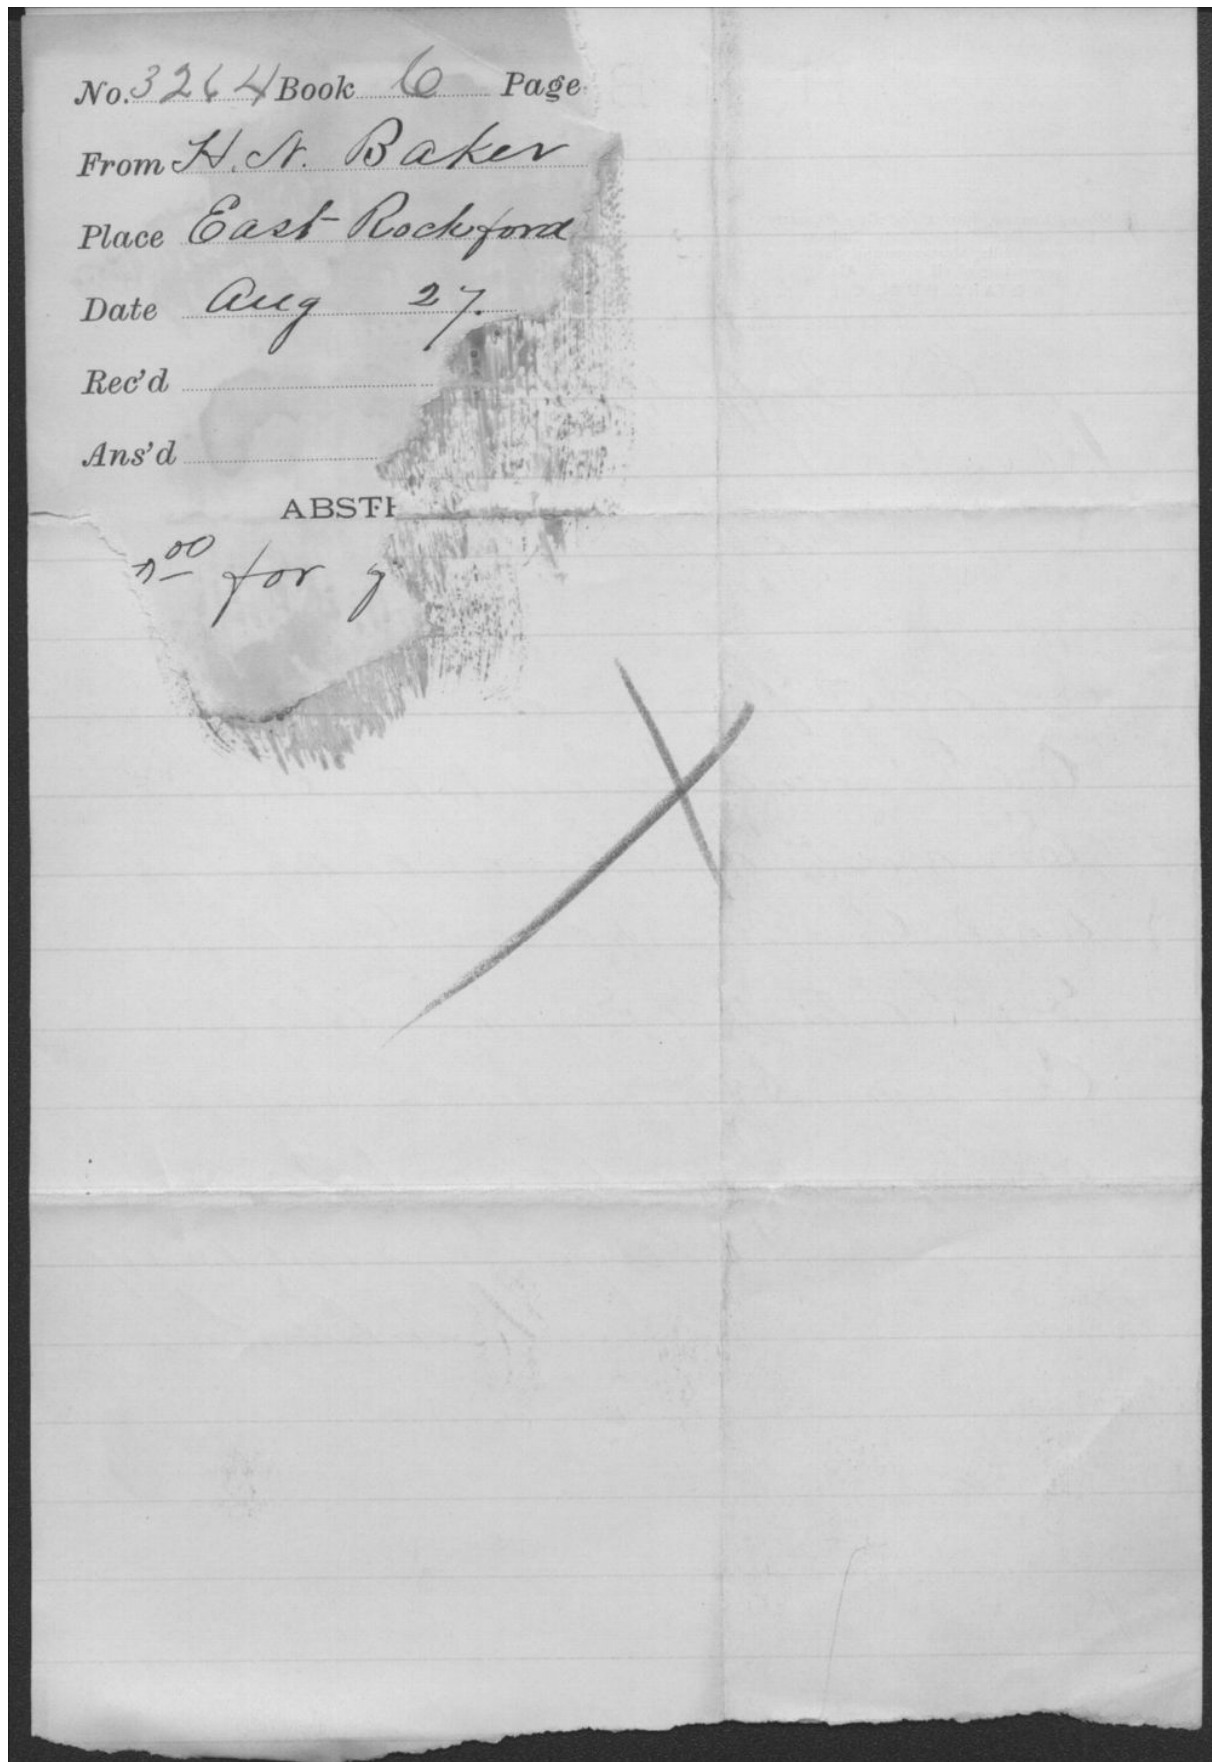 No. 3264 Book 6 Page
From H. N. Baker
Place East Rockford
Date Aug 27.
Rec'd
Ans'd
ABST
00 for